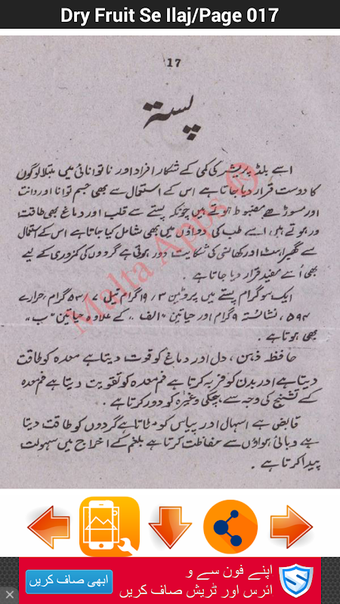 Dry Fruit Se Ilaj/Page 017
17
پستہ
اسے بلڈ پریشر کی کمی کے شکار افراد اور ناتوانائی میں مبتلا لوگوں
کا دوست قرار دیا جاتا ہے اس کے استعمال سے بھی جسم توانا اور دانت
اور مسوڑھے مضبوط ہوتے ہیں چونکہ پستے سے قلب اور دماغ بھی طاقت
ور ہوتے ہیں اسے طب کی دواؤں میں بھی شامل کیا جاتا ہے اس کے استعمال
سے گھبراہٹ اور کھانسی کی شکایت دور ہوتی ہے گردوں کی کمزوری کے لیے
بھی اُسے مفید قرار دیا جاتا ہے ۔
ایک سو گرام پستے میں پروٹین ۱۹/۳ گرام تیل ۵۳/۷ گرام، حرارے
۵۹۴، نشاستہ ۹ گرام اور حیاتین "الف" کے علاوہ حیاتین "ب"
بھی ہوتا ہے ۔
حافظہ ذہن، دل اور دماغ کو قوت دیتا ہے معدہ کو طاقت
دیتا ہے اور بدن کو فربہ کرتا ہے فم معدہ کو تقویت دیتا ہے فم معدہ
کے تشنج کی وجہ سے ہچکی وغیرہ کو دور کرتا ہے ۔
قابض ہے اسہال اور پیاس کو مٹاتا ہے گردوں کو طاقت دیتا
ہے وبائی ہواؤں سے حفاظت کرتا ہے بلغم کے اخراج میں سہولت
پیدا کرتا ہے ۔
Malta Apps ©
اپنے فون سے و
ائرس اور ٹریش صاف کریں
ابھی صاف کریں